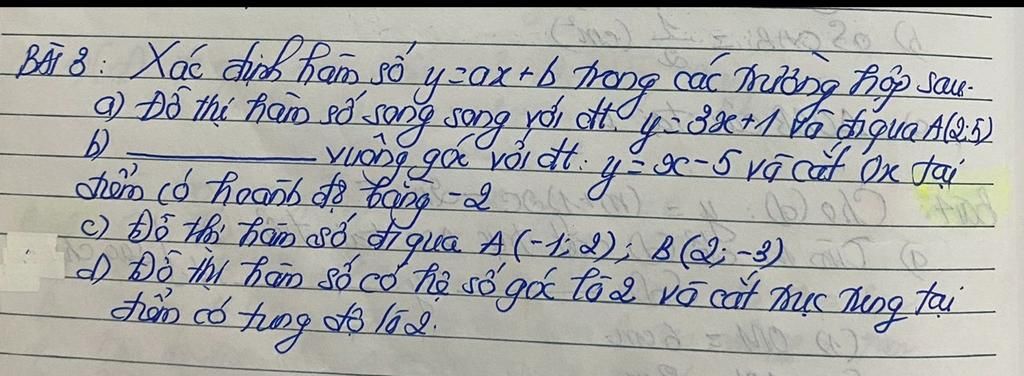 BÀI 3: Xác định hàm số y=ax+b trong các trường hợp sau.
a) Đồ thị hàm số song song với đt. y=3x+1 và đi qua A(2;5)
b) ________ vuông góc với đt: y=x-5 và cắt Ox tại
điểm có hoành độ bằng -2
c) Đồ thị hàm số đi qua A(-1;2); B(2;-3)
d) Đồ thị hàm số có hệ số góc là 2 và cắt trục tung tại
điểm có tung độ là 2.